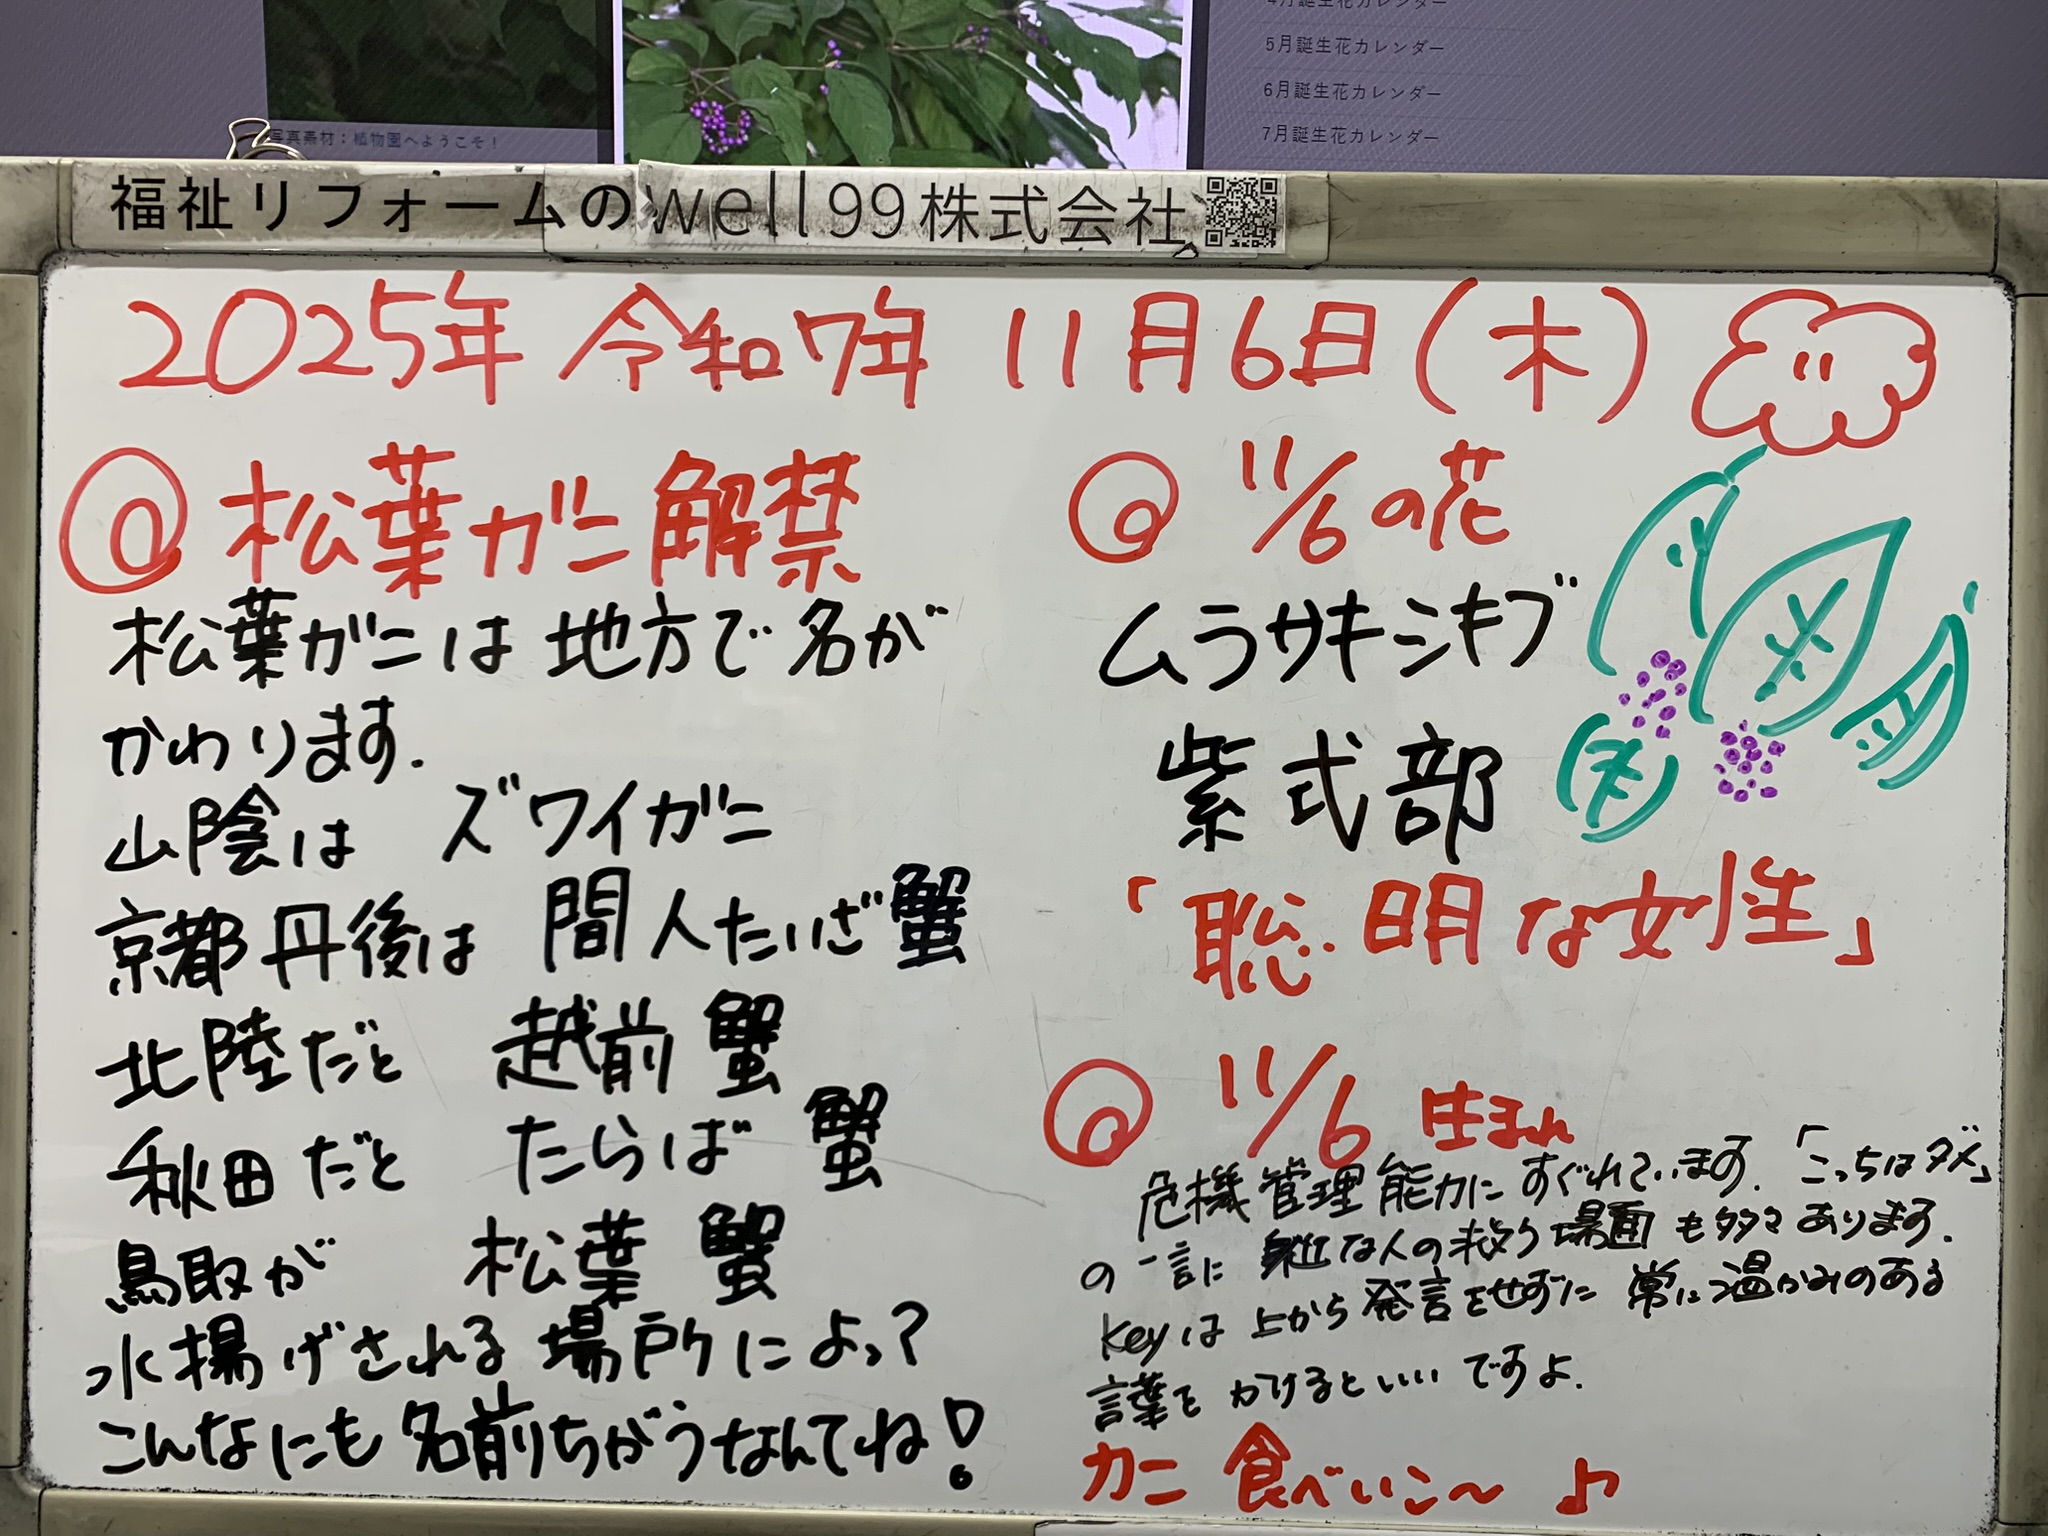 4月誕生花カレンダー
5月誕生花カレンダー
6月誕生花カレンダー
7月誕生花カレンダー
写真素材：植物園へようこそ！
福祉リフォームのwell99株式会社
2025年 令和7年 11月6日(木)
松葉ガニ解禁
松葉ガニは地方で名が
かわります.
山陰は ズワイガニ
京都丹後は 間人たいざ蟹
北陸だと 越前蟹
秋田だと たらば蟹
鳥取が 松葉蟹
水揚げされる場所によって
こんなにも名前ちがうなんてね!
11/6の花
ムラサキシキブ
紫式部
「聡明な女性」
11/6 生まれ
危機管理能力にすぐれています.「こっちはダメ」
の一言に 身近な人の救う場面も多々あります.
Keyは上から発言をせずに 常に温かみのある
言葉をかけるといいですよ.
カニ食べいこ〜♪